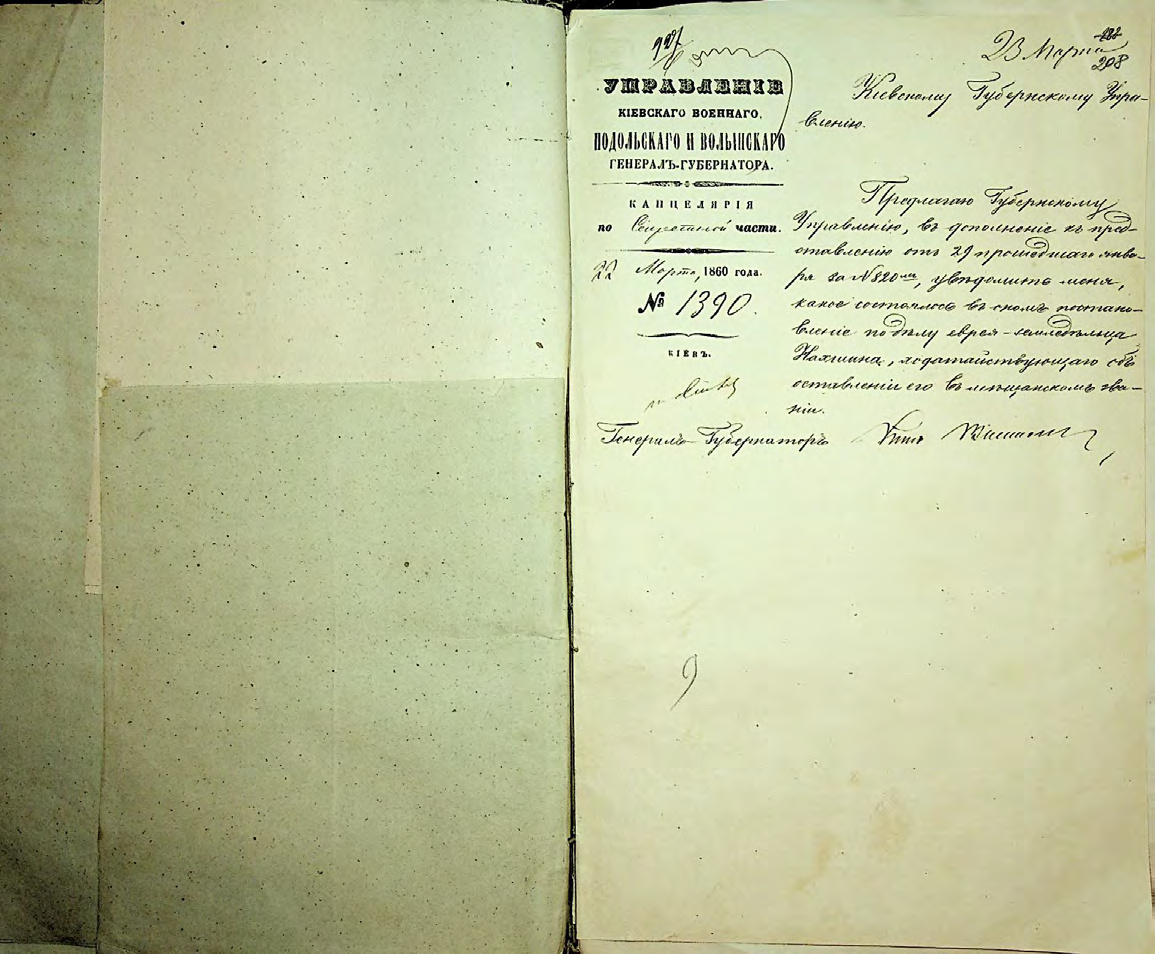 927
23 Марта
182
208
УПРАВЛЕНІЕ
КІЕВСКАГО ВОЕННАГО,
ПОДОЛЬСКАГО И ВОЛЫНСКАГО
ГЕНЕРАЛЪ-ГУБЕРНАТОРА.
КАНЦЕЛЯРІЯ
по Секретной части.
22 Марта, 1860 года.
№ 1390.
КІЕВЪ.
Кіевскому Губернскому Упра-
вленію.
Предлагаю Губернскому
Управленію, въ дополненіе къ пред-
ставленію отъ 29 прошедшаго янва-
ря за № 820, увѣдомить меня,
какое состоялось въ ономъ постано-
вленіе по дѣлу еврея-земледѣльца
Нахшина, ходатайствующаго объ
оставленіи его въ мѣщанскомъ зва-
ніи.
Генералъ Губернаторъ
9